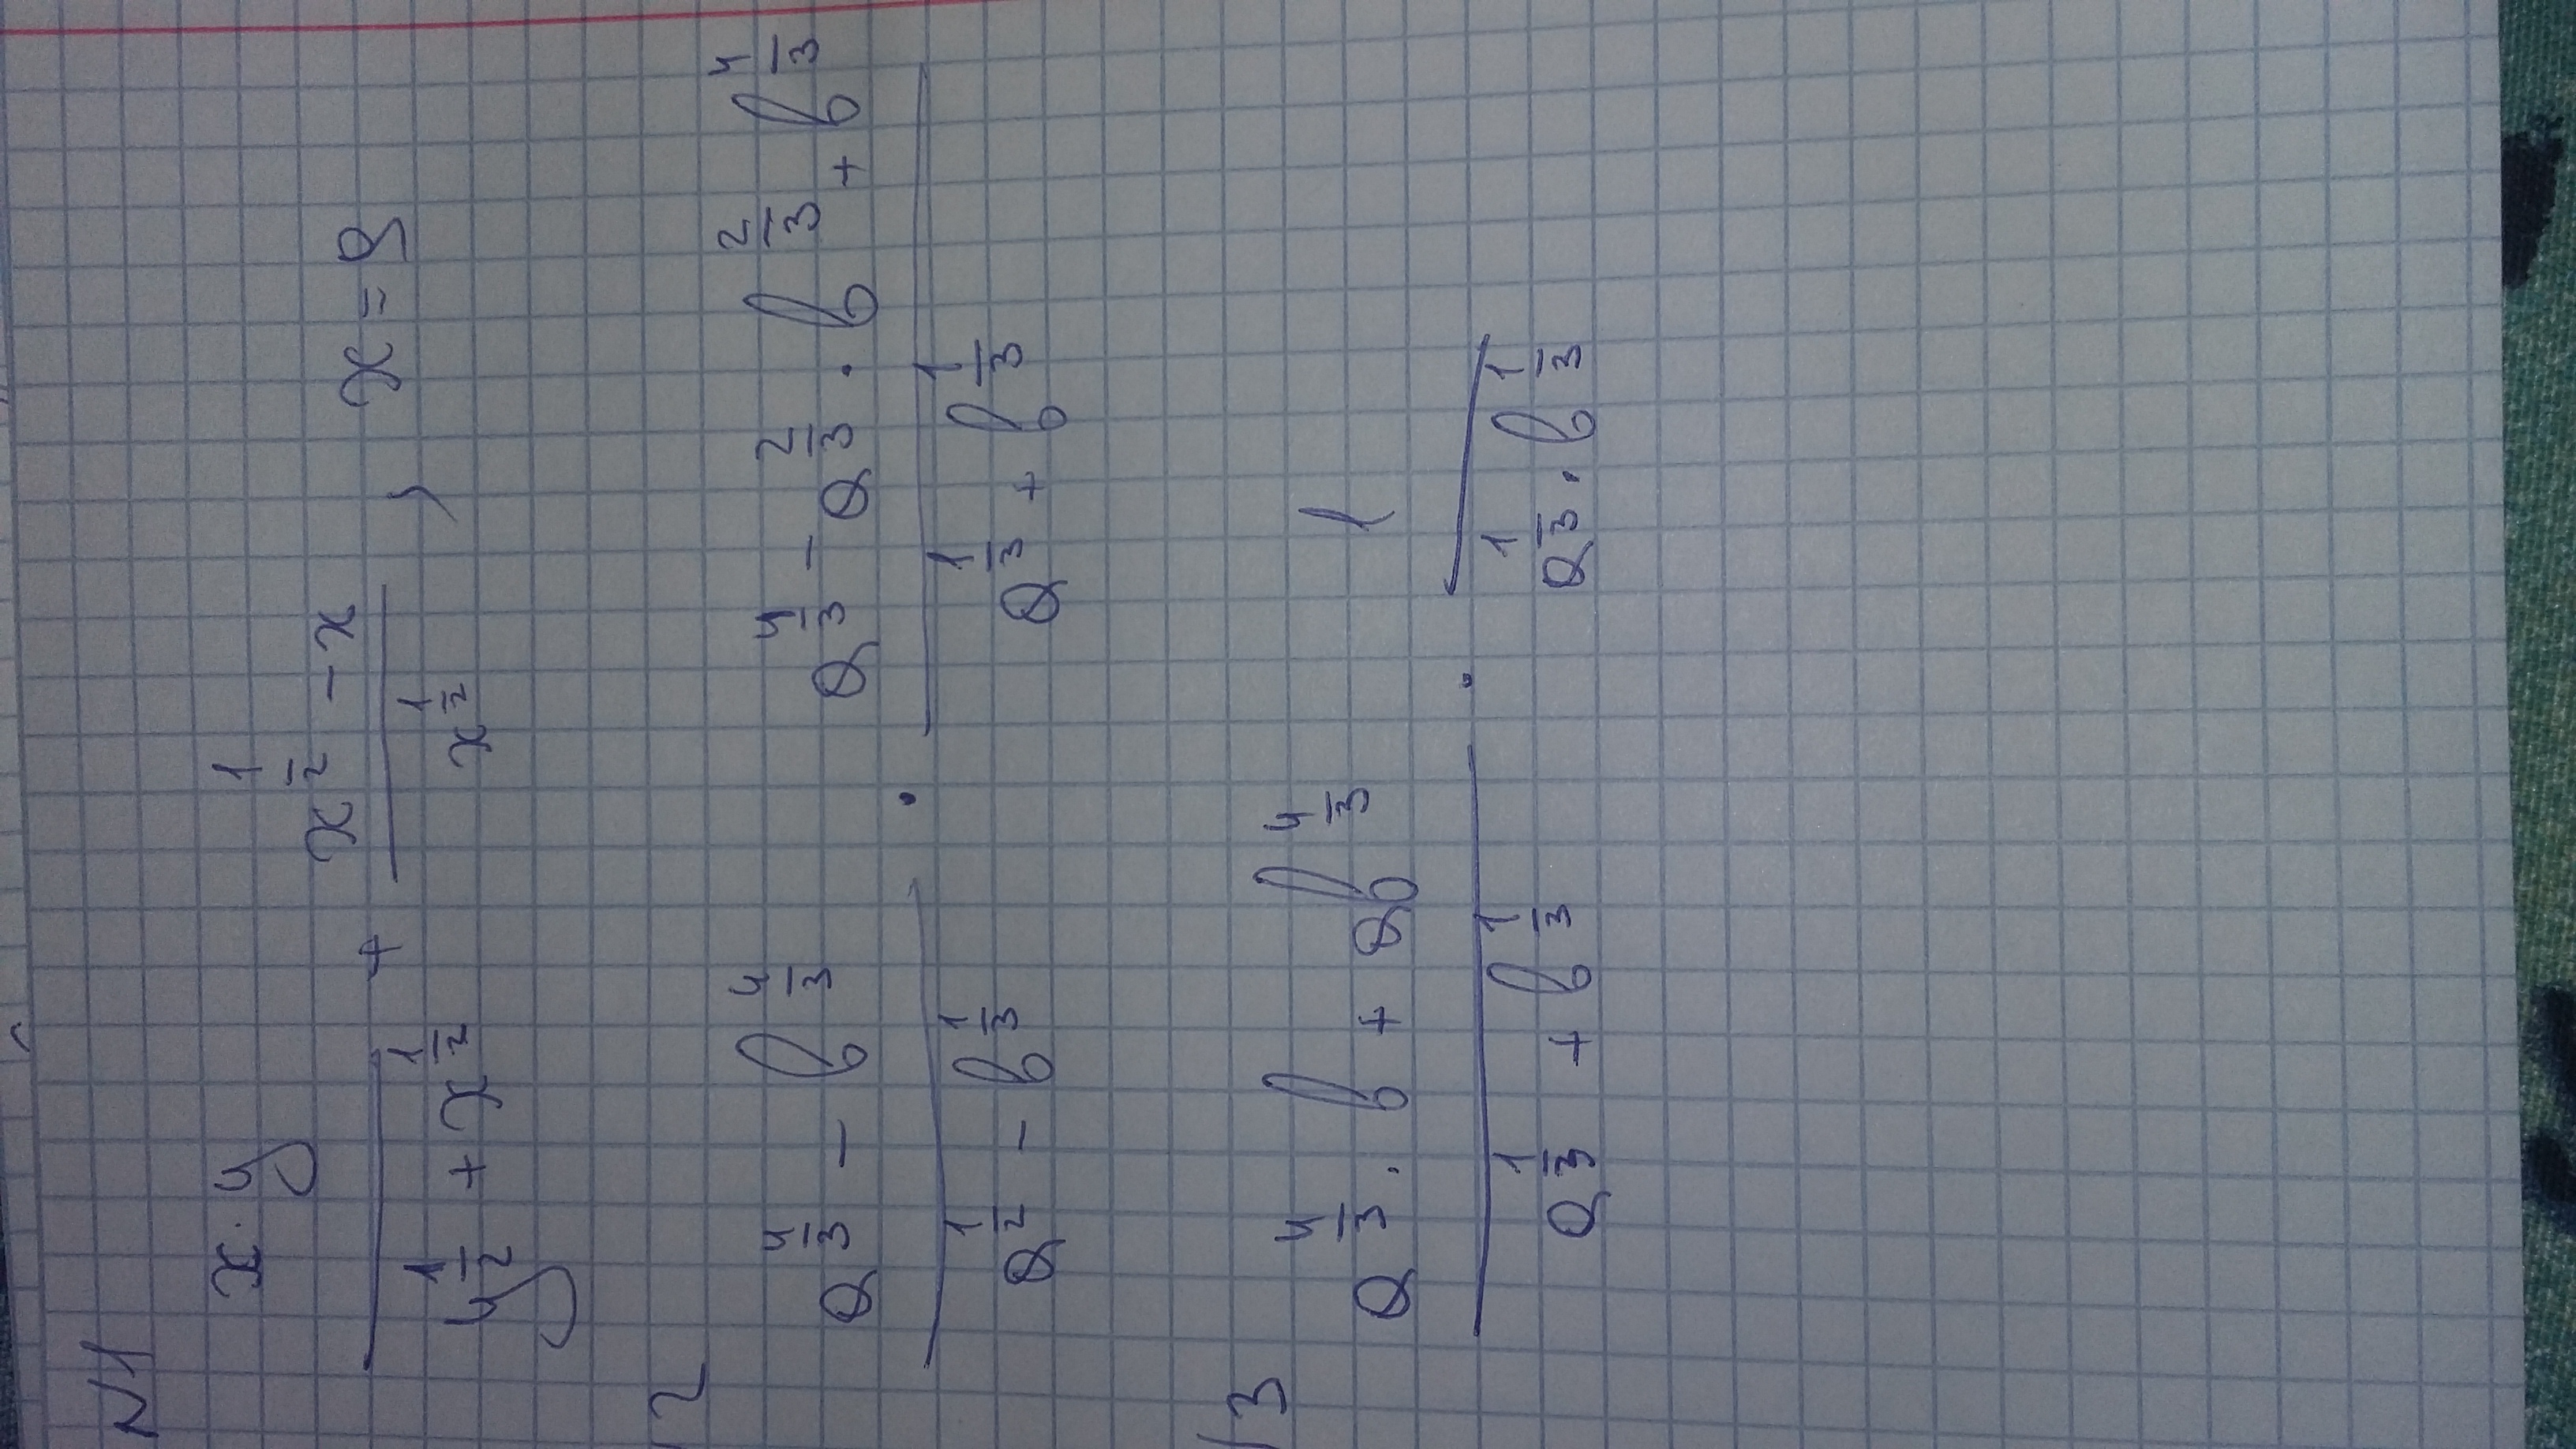 N1
x · y / (y^(1/2) + x^(1/2)) + (x^(1/2) - x) / x^(1/2) , x = 9
2
(a^(4/3) - b^(4/3)) / (a^(1/2) - b^(1/3)) · (a^(4/3) - a^(2/3) · b^(2/3) + b^(4/3)) / (a^(1/3) + b^(1/3))
3
(a^(4/3) · b + ab^(4/3)) / (a^(1/3) + b^(1/3)) · 1 / (a^(1/3) · b^(1/3))